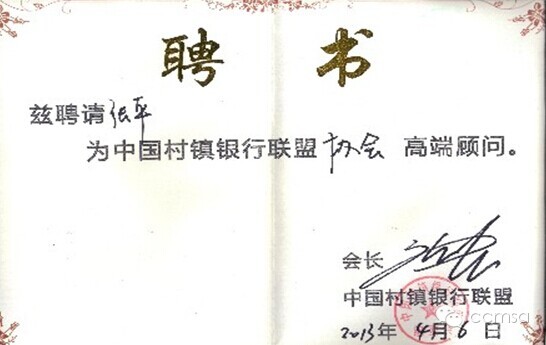 聘书
兹聘请张平
为中国村镇银行联盟协会 高端顾问。
会长
中国村镇银行联盟
2013年 4月6日
ccmsa